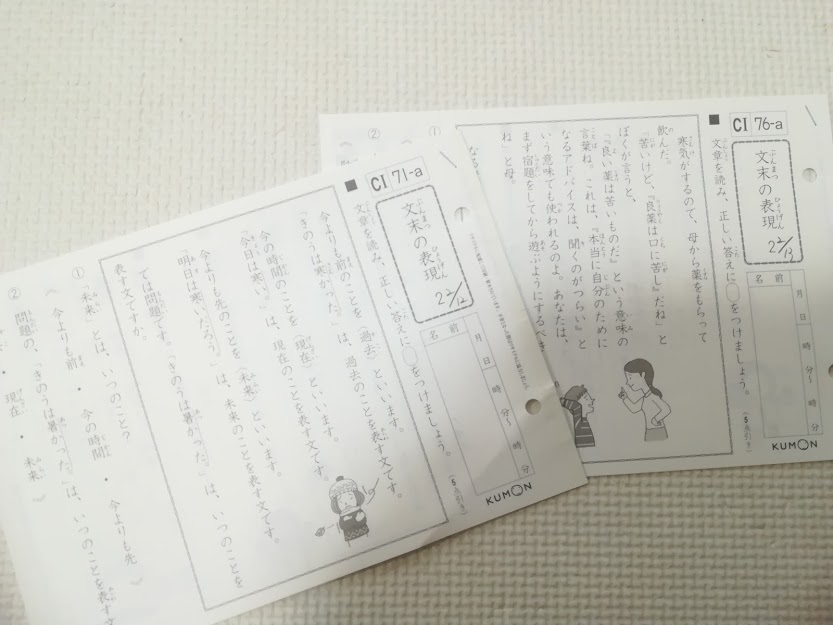 CI 71-a
文末の表現
22/12
名前
月 日
時 分〜 時 分
KUMON
文章を読み、正しい答えに○をつけましょう。
(5点引き)
今よりも前のことを(過去)といいます。
「きのうは寒かった。」は、過去のことを表す文です。
今の時間のことを(現在)といいます。
「今日は寒い。」は、現在のことを表す文です。
今よりも先のことを(未来)といいます。
「明日は寒いだろう。」は、未来のことを表す文です。
では問題です。「きのうは暑かった。」は、いつのことを
表す文ですか。
① 「未来」とは、いつのこと?
《 今よりも前 ・ 今の時間 ・ 今よりも先 》
② 問題の、「きのうは暑かった。」は、いつのことを表す文
・ 現在 ・ 未来 》
CI 76-a
文末の表現
22/13
名前
月 日
時 分〜 時
KUMON
文章を読み、正しい答えに○をつけましょう。
(5点引き)
寒気がするので、母から薬をもらって
飲んだ。
「苦いけど、『良薬は口に苦し』だね」と
ぼくが言うと、
「『良い薬は苦いものだ』という意味の
言葉ね。これは、『本当に自分のために
なるアドバイスは、聞くのがつらい』と
いう意味でも使われるのよ。あなたは、
まず宿題をしてから遊ぶようにするべき
ね」と母。
①
②